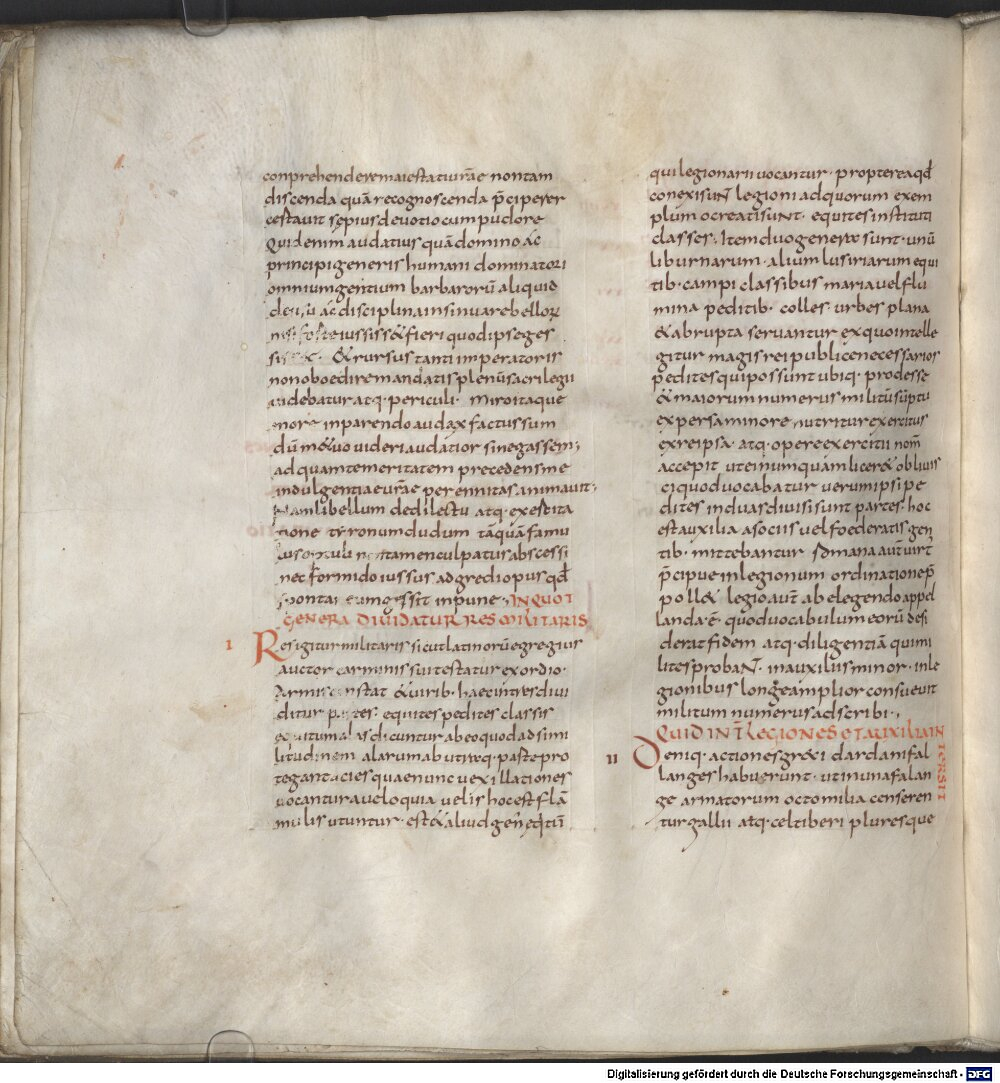 conprehendere maiestati urae non tam
discenda quā recognoscenda p̄ciperer
cestauit sepius deuotio cum pudore
Quid enim audatius quā domino ac
principi generis humani dominatori
omnium gentium barbarorū aliquid
de usu ac disciplina insinuare belloꝝ
nisi forte iussiss& fieri quod ipse ges
siss& & rursus tanti imperatoris
non oboedire mandatis plenū sacrilegii
uidebatur atq· periculi· Miro itaque
more in parendo audax factus sum
dū m&uo uideri audatior si negassem;
ad quam temeritatem precedens me
indulgentia eurae perennitas animauit·
Nam libellum de dilectu atq· exeɼtita
tione tyronum dudum tāquā famu
lus non tamen culpatus abscessi
nec formido iussus adgredi opus qđ
spontan eum gessit inpune· IN QUOT
GENERA DIVIDATUR RES MILITARIS
I Res igitur militaris sicut latinorū egregius
auctor carminis sui testatur exordio·
Armis constat & uirib· haec in tres diui
ditur partes· equites pedites classis
equitum alas dicuntur ab eo quod ad simi
litudinem alarum ab utreq· paste pro
tegant acies quae nunc uexillationes
uocantur a ueloquia uelis hoc est flā
mulis utuntur· est & aliud gen eqitū
qui legionarii uocantur· propterea qđ
conexi sunt legioni ad quorum exem
plum ocreati sunt· equites instituti
classes· Item duo genera sunt· unū
liburnarum· alium lusiriarum equi
tib· campi classibus maria uel flu
mina peditib· colles· urbes plana
& abrupta seruantur ex quo intelle
gitur magis rei publice necessarios
pedites qui possunt ubiq· prodesse
& maiorum numerus militū sūptu
expersa minore nutritur exercitus
ex re ipsa atq· opere exercitii nom̄
accepit ut ei numquām licer& obliuis
ci quod uocabatur uerum ipsi pe
dites in duas diuisi sunt partes· hoc
est auxilia a sociis uel foederatis gen
tib· mittebantur Romana aut uirt
p̄cipue in legionum ordinatione p̄
poll& legio aut ab elegendo appel
landa ē quod uocabulum eorū desi
derat fidem atq· diligentiā qui mi
lites probaN̄· in auxiliis minor· in le
gionibus longe amplior consueuit
militum numerus adscribi·,
QUID INT̄ LEGIONES ET AUXILIA IN
TERSIT
II Deniq· actiones gr&i dardani fal
langes habuerunt· ut in una falan
ge armatorum octo milia censeren
tur gallii atq· celtiberi pluresque
Digitalisierung gefördert durch die Deutsche Forschungsgemeinschaft - DFG